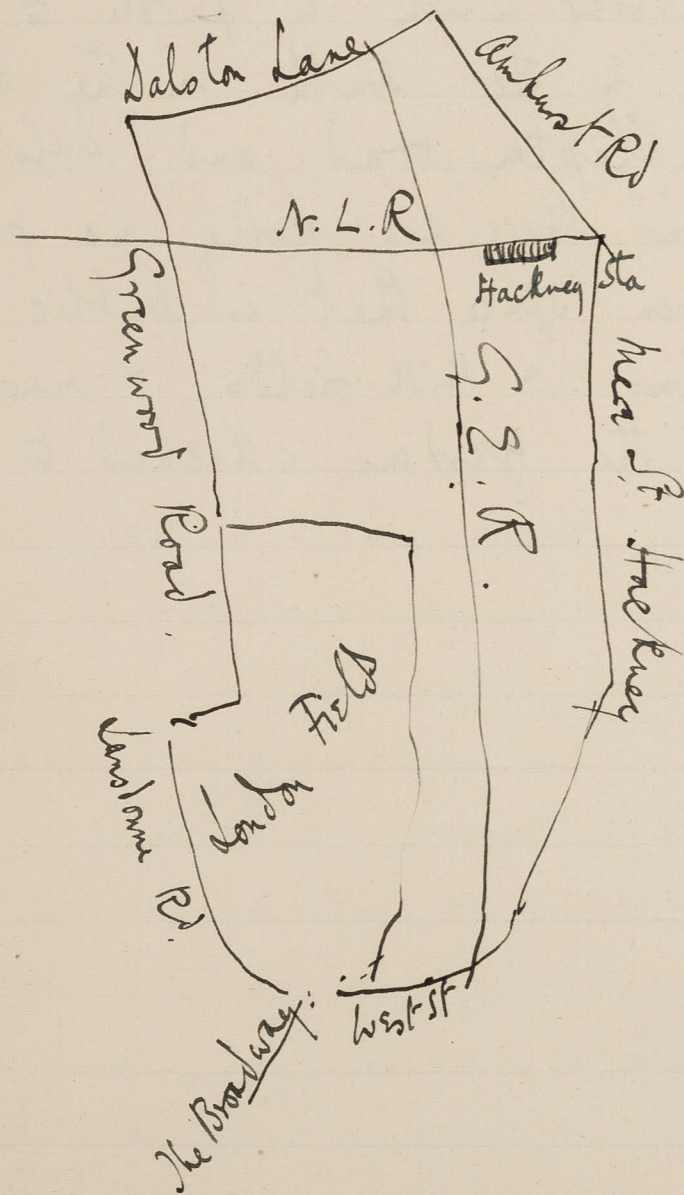 Dalston Lane
Amhurst Rd
N. L. R
Hackney Sta
Greenwood Road.
G. E. R.
Mare St. Hackney
London
Field
Lansdowne Rd.
West St
The Broadway